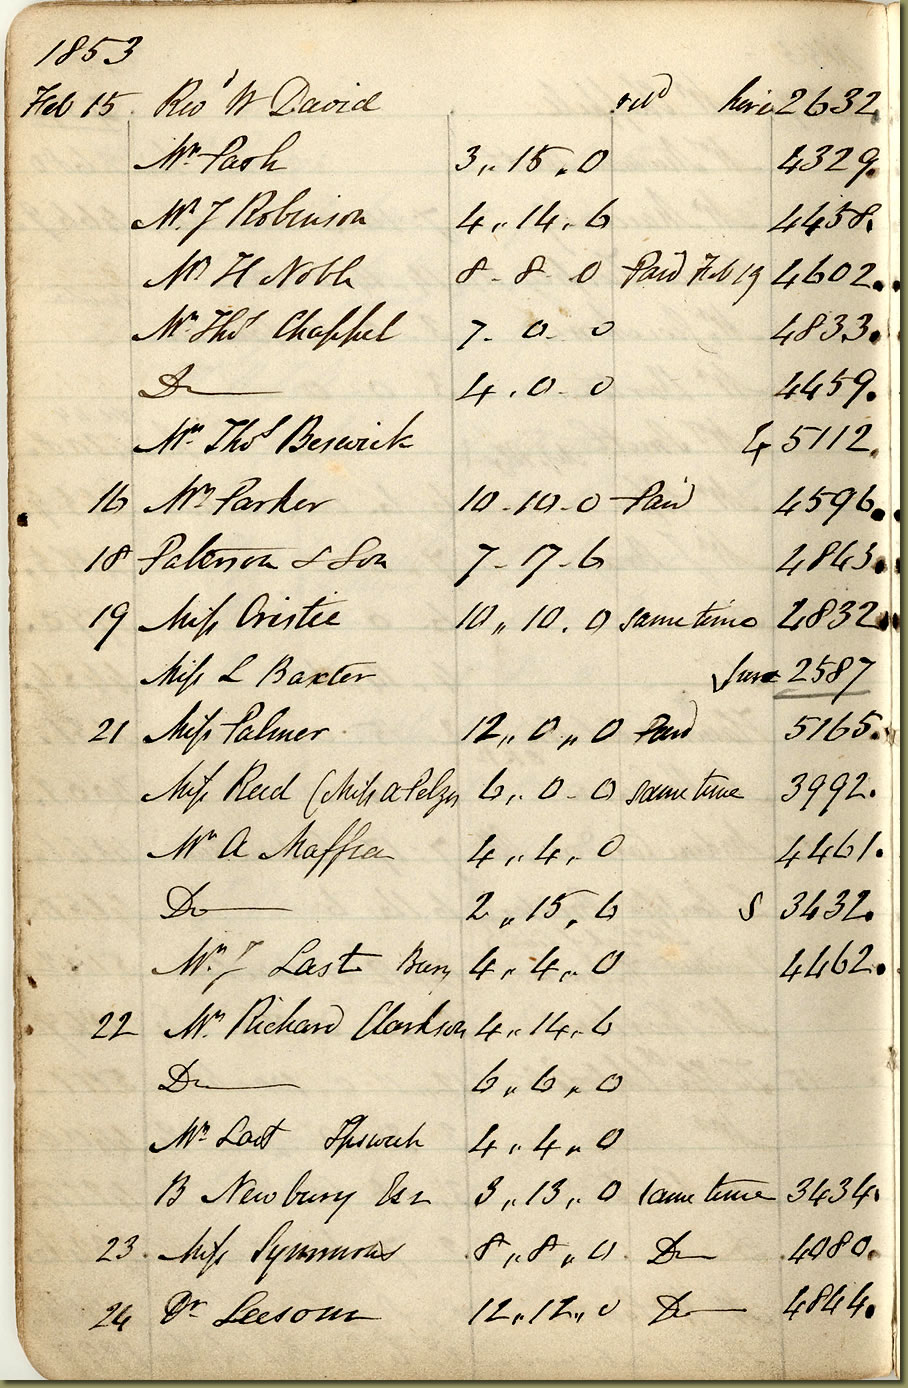 1853
Feb 15 Revd W David retd hire 2632
Mr Pash 3,, 15 ,, 0 4329.
Mr. J Robinson 4 ,, 14 ,, 6 4458.
Mr H Noble 8 - 8 - 0 Paid Feb 19 4602.
Mr Thos Chappel 7 - 0 - 0 4833.
Do 4 . 0 - 0 4459.
Mr Thos Beswick 4 5112.
16 Mr Parker 10 - 10 - 0 Paid 4596.
18 Paterson & Son 7 - 17 - 6 4863.
19 Miss Cristie 10 ,, 10 . 0 same time 4832.
Miss L Baxter 2587
21 Miss Palmer 12 ,, 0 ,, 0 Paid 5165.
Miss Reed (Miss a Pelzer 6 ,, 0 - 0 same time 3992.
Mr A Maffia 4 ,, 4 ,, 0 4461.
Do 2 ,, 15 ,, 6 S 3432.
Mr. J Last Bury 4 ,, 4 ,, 0 4462.
22 Mr. Richard Clarkson 4 ,, 14 ,, 6
Do 6 ,, 6 ,, 0
Mr Last Ipswich 4 ,, 4 ,, 0
B Newbury Esq 3 ,, 13 ,, 0 same time 3434.
23 Miss Symmons 8 ,, 8 ,, 0 Do 4080.
24 Dr Leesom 12 ,, 12 ,, 0 Do 4844.